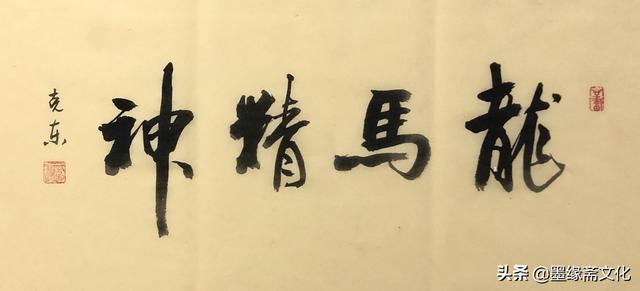 龍馬精神
克东
头条 @墨缘斋文化